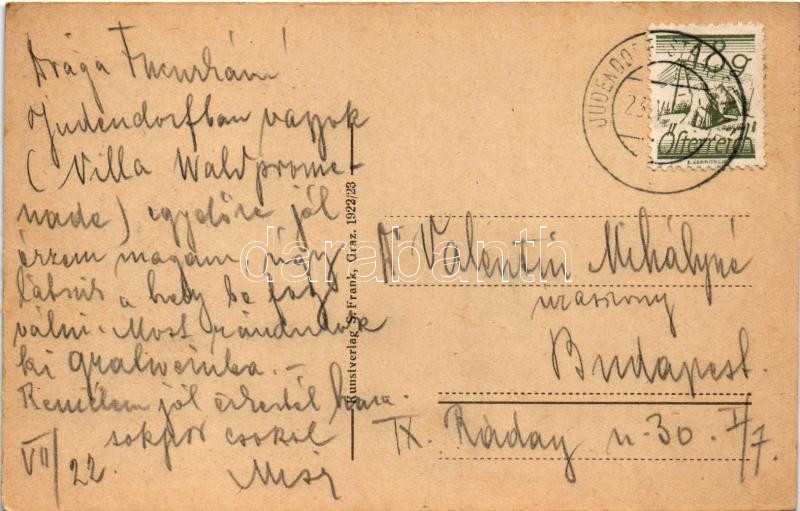 Drága Fucurkám!
Judendorfban vagyok
(Villa Waldprome-
nade) egyelőre jól
érzem magam, úgy
látszik a hely be fog
válni. Most rándulok
ki Gratweinba. –
Remélem jól érkeztél haza.
sokszor csókol
VII/22. Misi
Kunstverlag S. Frank, Graz. 1922/23
JUDENDORF-STRA
23. V
8 g
Österreich
Dr Valentin Mihályné
úrasszony
Budapest.
IX. Ráday u. 30. II/7.
darabanth